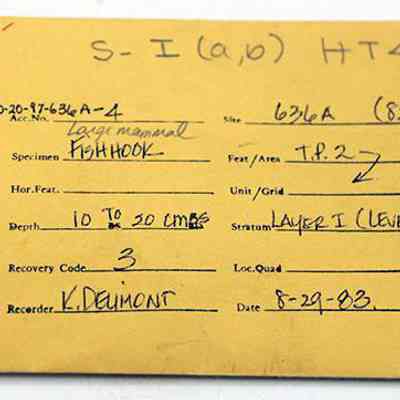 S-I (a,b) HT4
0-20-97-636A-4
Acc.No. Site 636A (8
Large mammal
Specimen FISHHOOK Feat/Area T.P. 2
Hor.Feat. Unit/Grid
Depth 10 TO 20 CMBS Stratum LAYER I (LEVE
Recovery Code 3 Loc.Quad
Recorder K. DELIMONT Date 8-29-83.